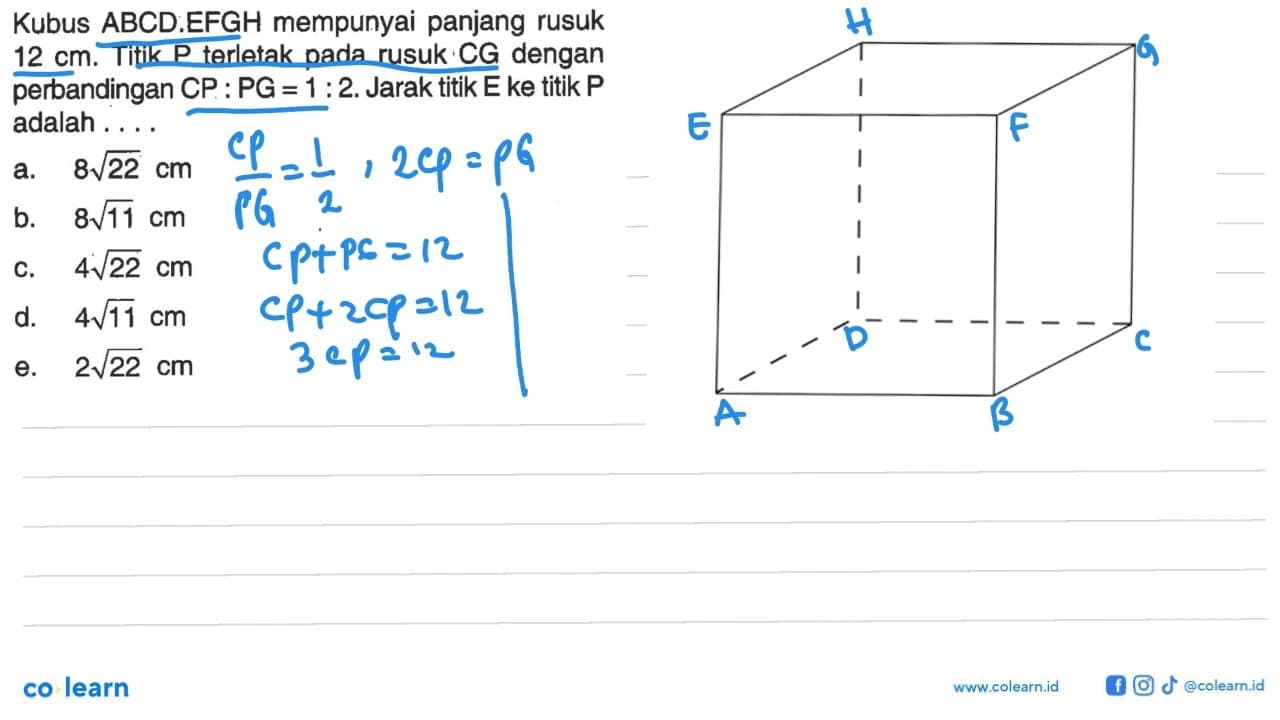 Kubus ABCD.EFGH mempunyai panjang rusuk
12 cm. Titik P terletak pada rusuk CG dengan
perbandingan CP : PG = 1 : 2. Jarak titik E ke titik P
adalah . . . .
a. 8√22 cm
b. 8√11 cm
c. 4√22 cm
d. 4√11 cm
e. 2√22 cm
CP/PG = 1/2 , 2CP = PG
CP + PG = 12
CP + 2CP = 12
3CP = 12
H
G
E
F
D
C
A
B
co learn
www.colearn.id
@colearn.id